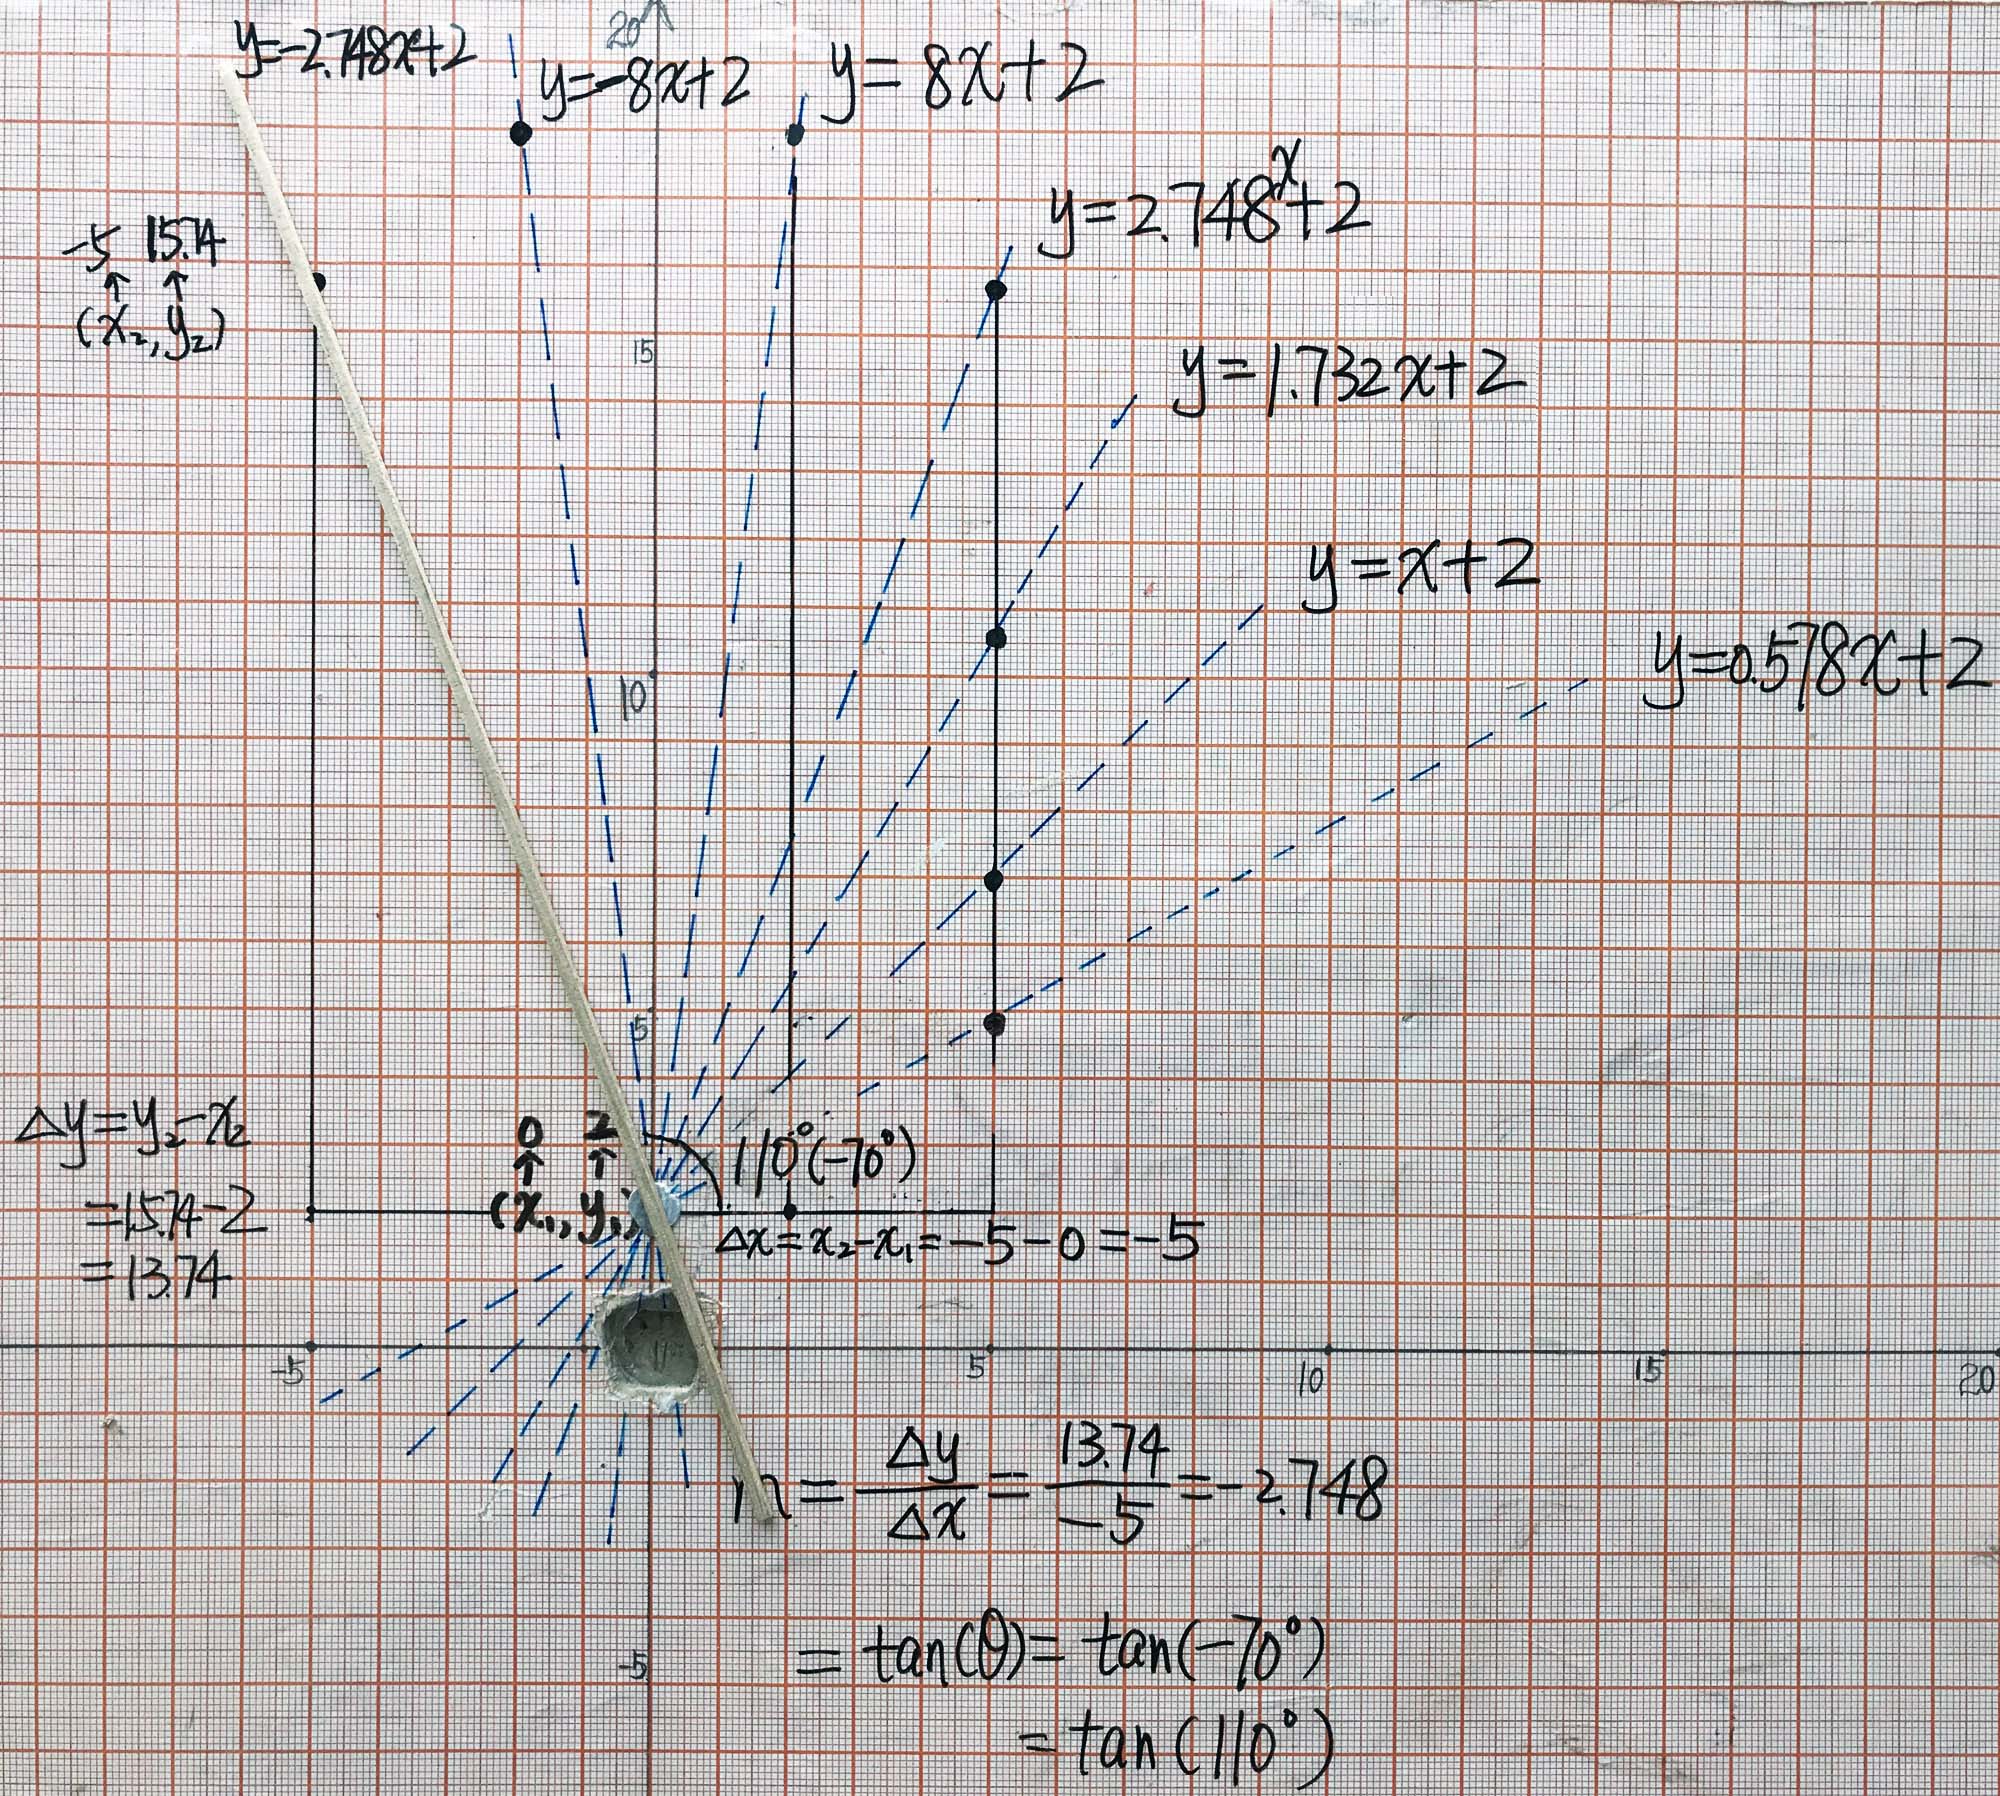 y=-2.748x+2
20
y=-8x+2
y=8x+2
y=2.748x+2
-5 15.74
↑ ↑
(x₂, y₂)
15
y=1.732x+2
y=x+2
y=0.578x+2
10
5
Δy=y₂-x₂
=15.74-2
=13.74
0 2
↑ ↑
(x₁, y₁)
110°(-70°)
Δx=x₂-x₁=-5-0=-5
-5
5
10
15
20
m=Δy/Δx=13.74/-5=-2.748
=tan(θ)=tan(-70°)
=tan(110°)
-5